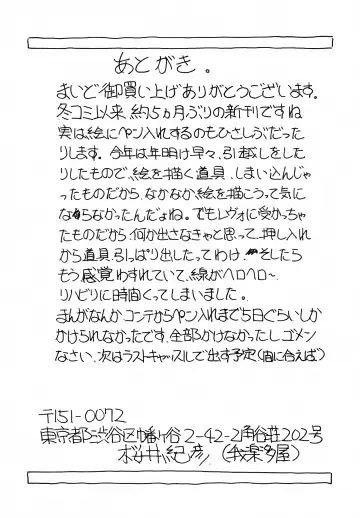 あとがき。
まいど御買い上げありがとうございます。
冬コミ以来、約5ヵ月ぶりの新刊ですね
実は絵にペン入れするのもひさしぶりだった
りします。今年は年明け早々、引越しをした
りしたもので、絵を描く道具、しまい込んじゃ
ったものだから、なかなか絵を描こうって気に
ならなかったんだよね。でもレヴォに受かっちゃ
たものだから、何か出さなきゃと思って、押し入れ
から道具、引っぱり出したってわけ。そしたら
もう感覚わすれていて、線がヘロヘロ〜
リハビリに時間くってしまいました。
まんがなんか、コンテからペン入れまで5日ぐらいしか
かけられなかったです、全部かけなかったし、ゴメン
なさい、次はラストキャッスルで出す予定(間に合えば)
〒151-0072
東京都渋谷区幡ヶ谷2-42-2角谷荘202号
桜井紀彦(我楽多屋)